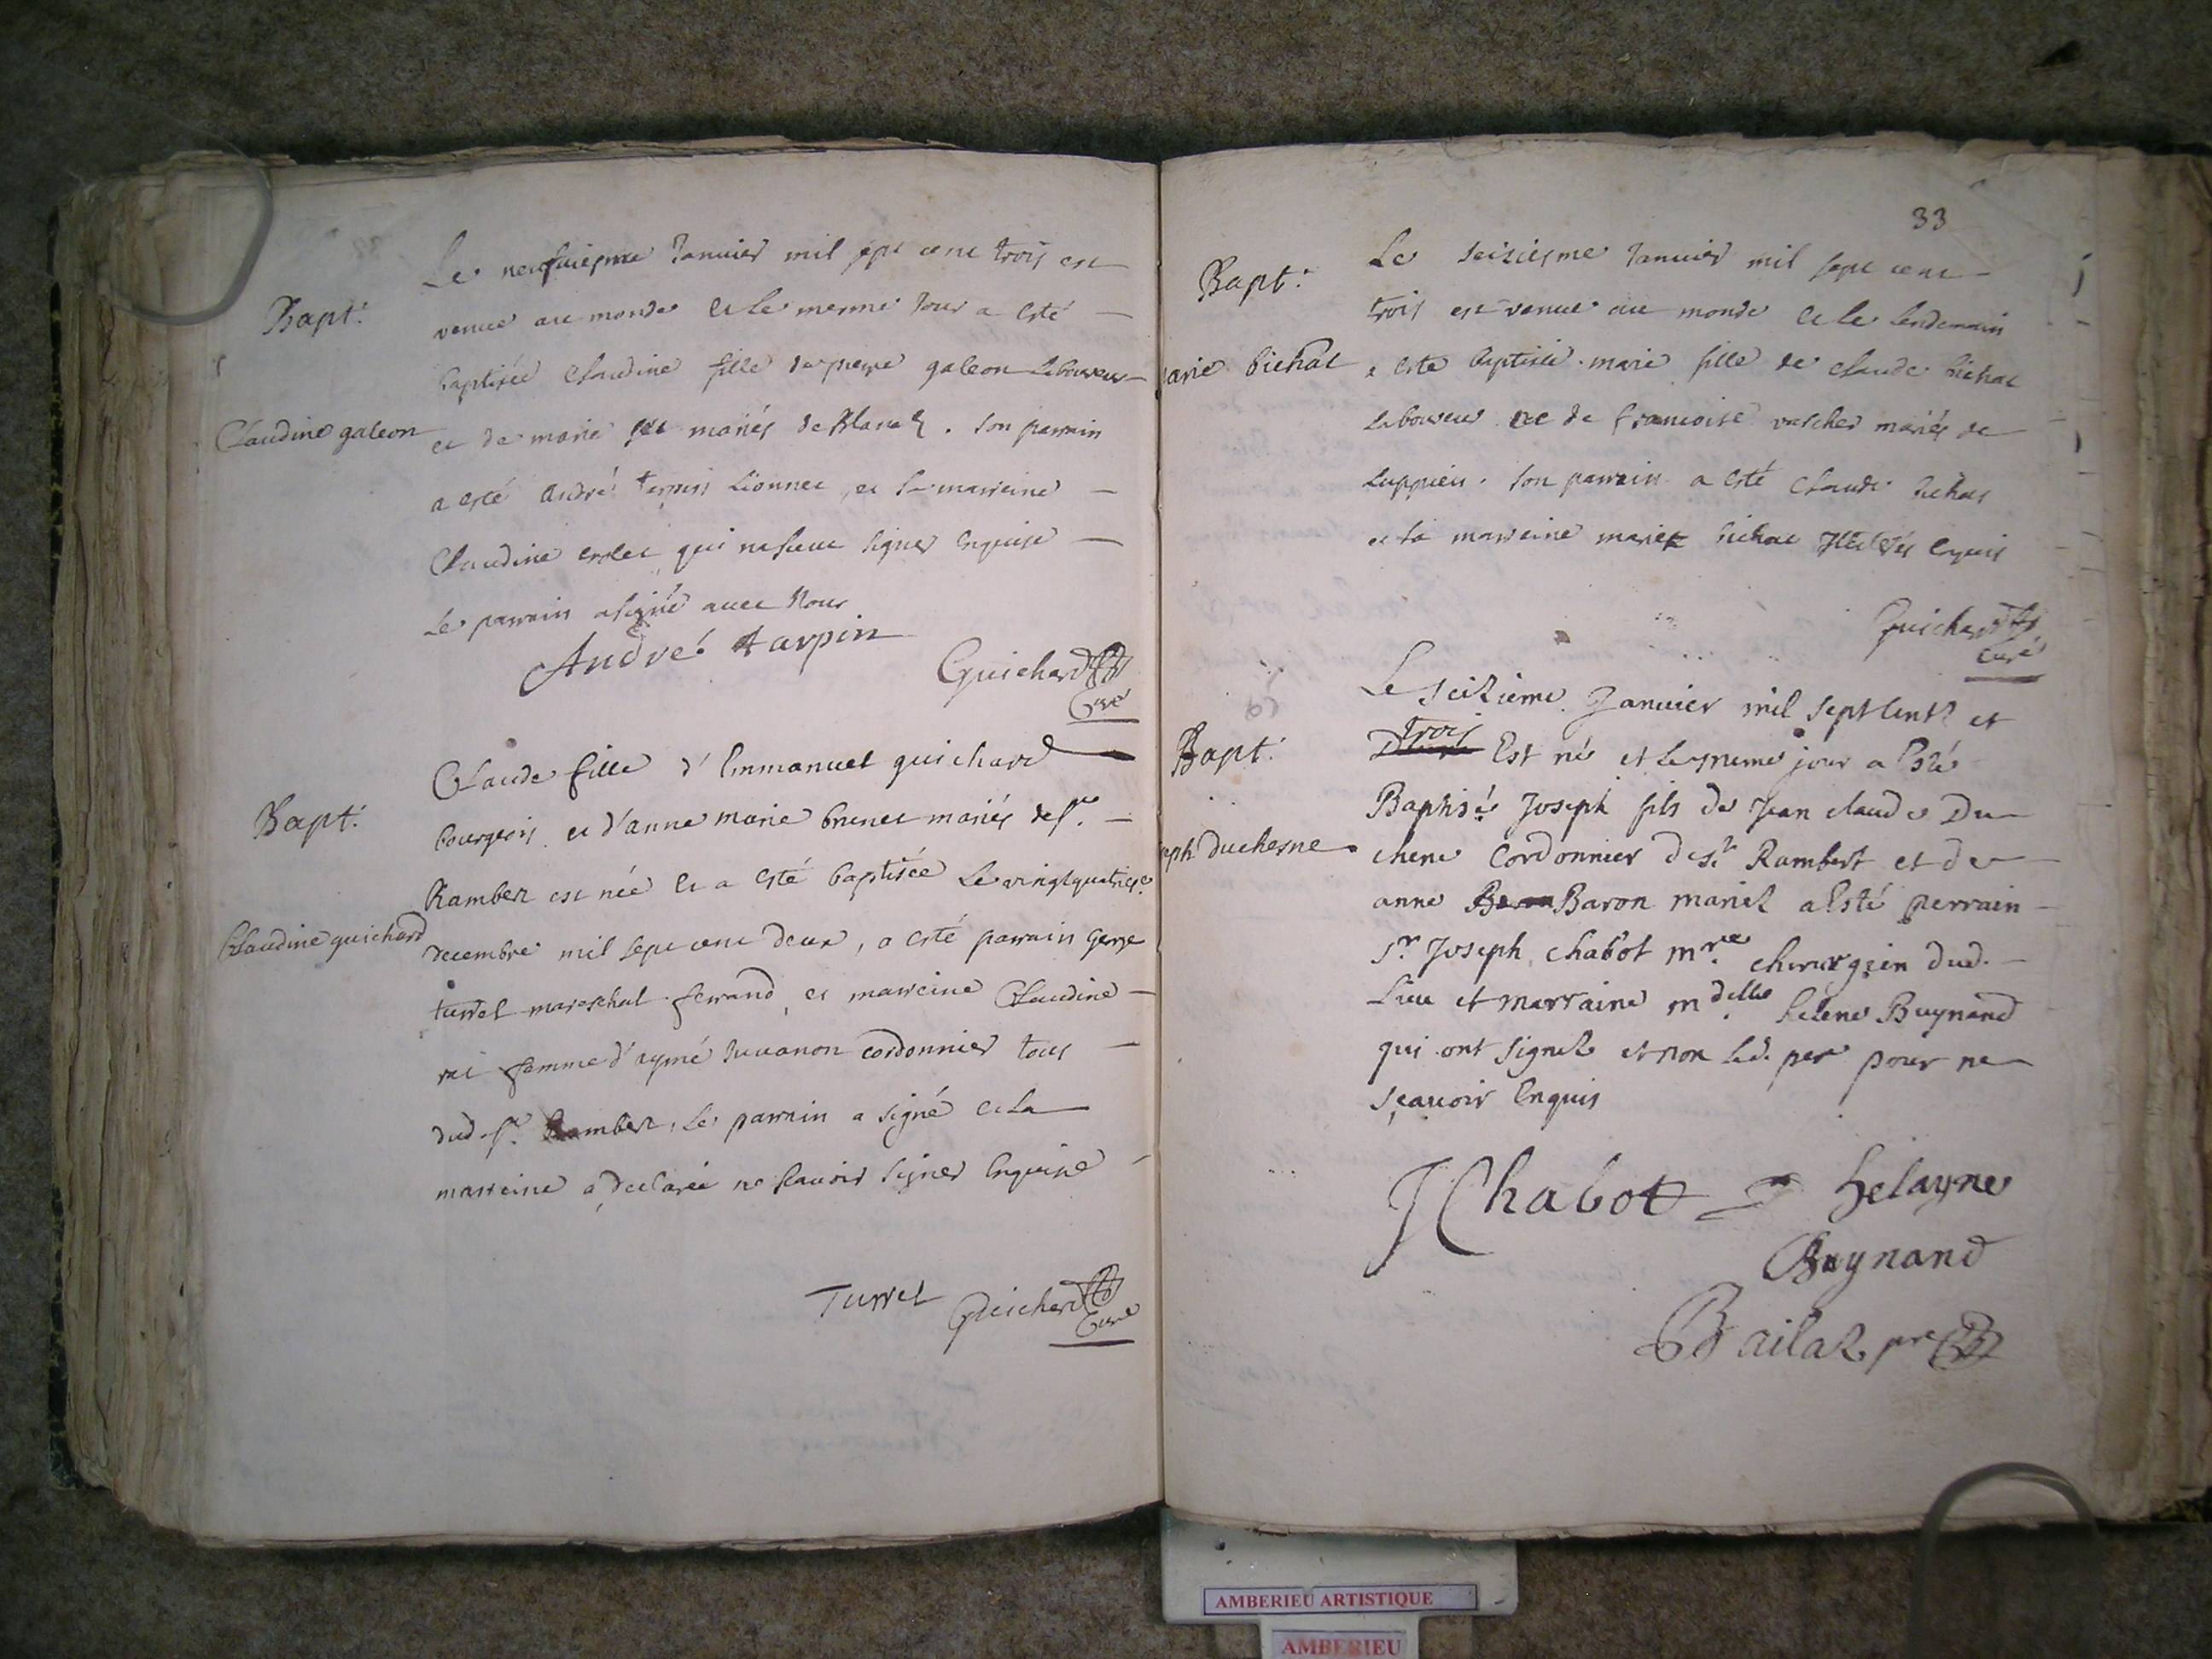 Bapt.
Claudine galeon
Le neufuiesme Januier mil sept cent trois est
venue au monde et le mesme jour a esté
baptisée Claudine fille de pierre galeon laboureur
et de marie mariés de Blanaz. son parrain
a esté André tarpin Lionnec, et la marreine
Claudine qui ne sceut signer enquise
Le parrain a signé auec Nous
André tarpin
Guichard
Curé
Bapt.
Claudine guichard
Claude fille d'Emmanuel guichard
bourgeois et d'anne marie brunet mariés de st.
Rambert est née et a esté baptisée le vingtquatries.e
decembre mil sept cent deux, a esté parrain
turrel mareschal ferrand, et marreine Claudine
femme d'aymé Juuanon cordonnier tous
dud. st. Rambert, le parrain a signé et la
marreine a declarée ne scauoir signer enquise
Turrel Guichard
Curé
33
Bapt.
arie bichat
Le seiziesme Januier mil sept cent
trois est venue au monde et le lendemain
a esté baptisée marie fille de claude bichat
laboureur et de francoise vascher mariés de
Luppieu. son parrain a esté Claude bichat
et sa marreine marie bichat enquis
Guichard
curé
Bapt.
eph duchesne
Le seizieme Januier mil sept centz et
trois
Est né et le meme jour a esté
Baptisé Joseph fils de Jean claude Du
chene Cordonnier de St Rambert et de
anne Baron mariez a esté perrain
Sr Joseph chabot mre chirurgien dud.
Lieu et marraine mdelle helene Buynand
qui ont signez et non led. pere pour ne
sçauoir enquis
J Chabot helayne
Buynand
Bailaz pre
AMBERIEU ARTISTIQUE
AMBERIEU